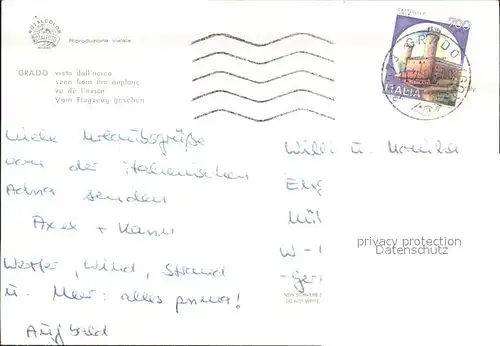 ROTALCOLOR
Riproduzione vietata
GRADO vista dall'aereo
seen from the airplane
vu de l'avion
Vom Flugzeug gesehen
700
GRADO
ITALIA
Liebe Urlaubsgrüße
von der italienischen
Adria senden
Axel +
Wetter, Wind, Strand
u. Meer: alles prima!
Auf bald
Willi u. Monika
privacy protection
Datenschutz